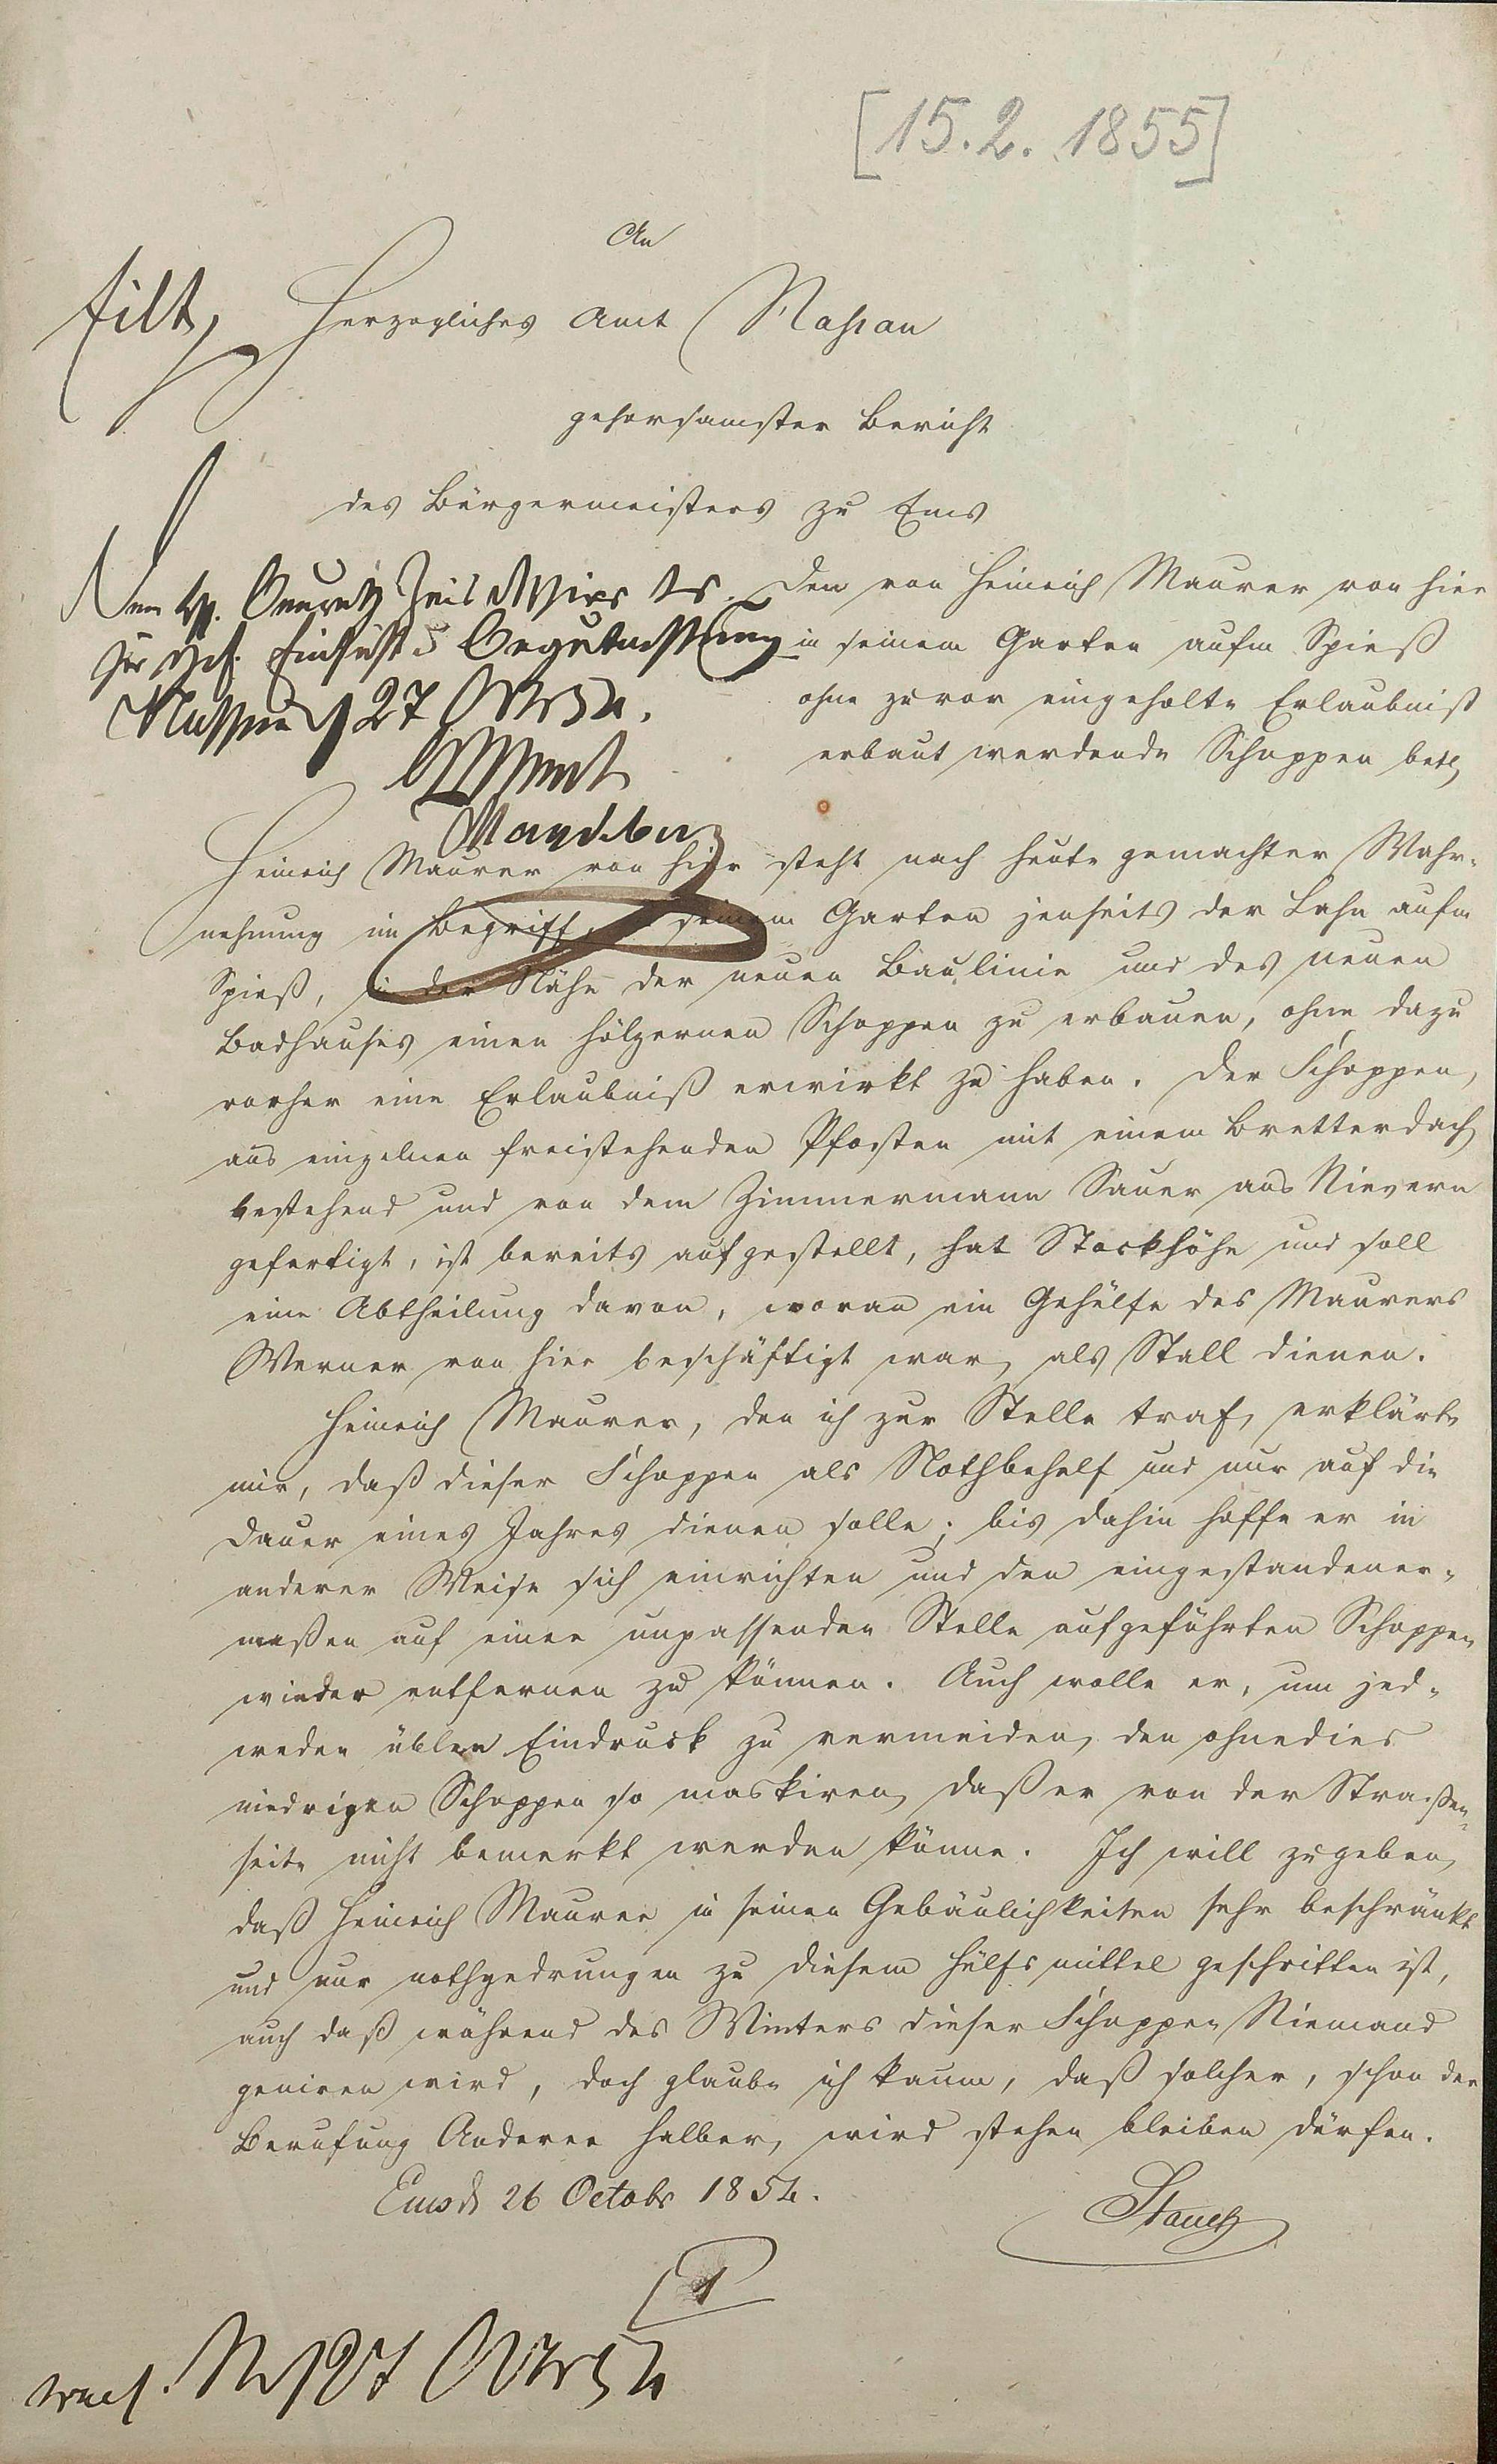 [15.2.1855]
An
Eilt, Herzogliches Amt Nassau
gehorsamster Bericht
des Bürgermeisters zu Ems
Den von Heinrich Maurer von hier
in seinem Garten aufm Spieß
ohne zuvor eingeholte Erlaubniß
erbaut werdende Schoppen betr
zur Einsicht & Begutachtung
Nassau 27 Octbr 54.
Heinrich Maurer von hier steht nach heute gemachter Wahr-
nehmung im Begriff, in seinem Garten jenseits der Lahn aufm
Spieß, in der Nähe der neuen Baulinie und des neuen
Badhauses einen hölzernen Schoppen zu erbauen, ohne dazu
vorher eine Erlaubniß erwirkt zu haben. Der Schoppen,
aus einzelnen freistehenden Pfosten mit einem Bretterdach
bestehend und von dem Zimmermann Sauer aus Nievern
gefertigt, ist bereits aufgestellt, hat Stockhöhe und soll
eine Abtheilung davon, woran ein Gehülfe des Maurers
Werner von hier beschäftigt war, als Stall dienen.
Heinrich Maurer, den ich zur Stelle traf, erklärte
mir, daß dieser Schoppen als Nothbehelf und nur auf die
Dauer eines Jahres dienen solle; bis dahin hoffe er in
anderer Weise sich einrichten und den eingestandener-
maßen auf einer unpassenden Stelle aufgeführten Schoppen
wieder entfernen zu können. Auch wolle er, um jed-
weden üblen Eindruck zu vermeiden, den ohnedies
niedrigen Schoppen so maskiren, daß er von der Straßen-
seite nicht bemerkt werden könne. Ich will zugeben,
daß Heinrich Maurer in seinen Gebäulichkeiten sehr beschränkt
und nur nothgedrungen zu diesem Hülfsmittel geschritten ist,
auch daß während des Winters dieser Schoppen Niemand
geniren wird, doch glaube ich kaum, daß solcher, schon der
Berufung Anderer halber, wird stehen bleiben dürfen.
Ems d 26 Octobr 1854.